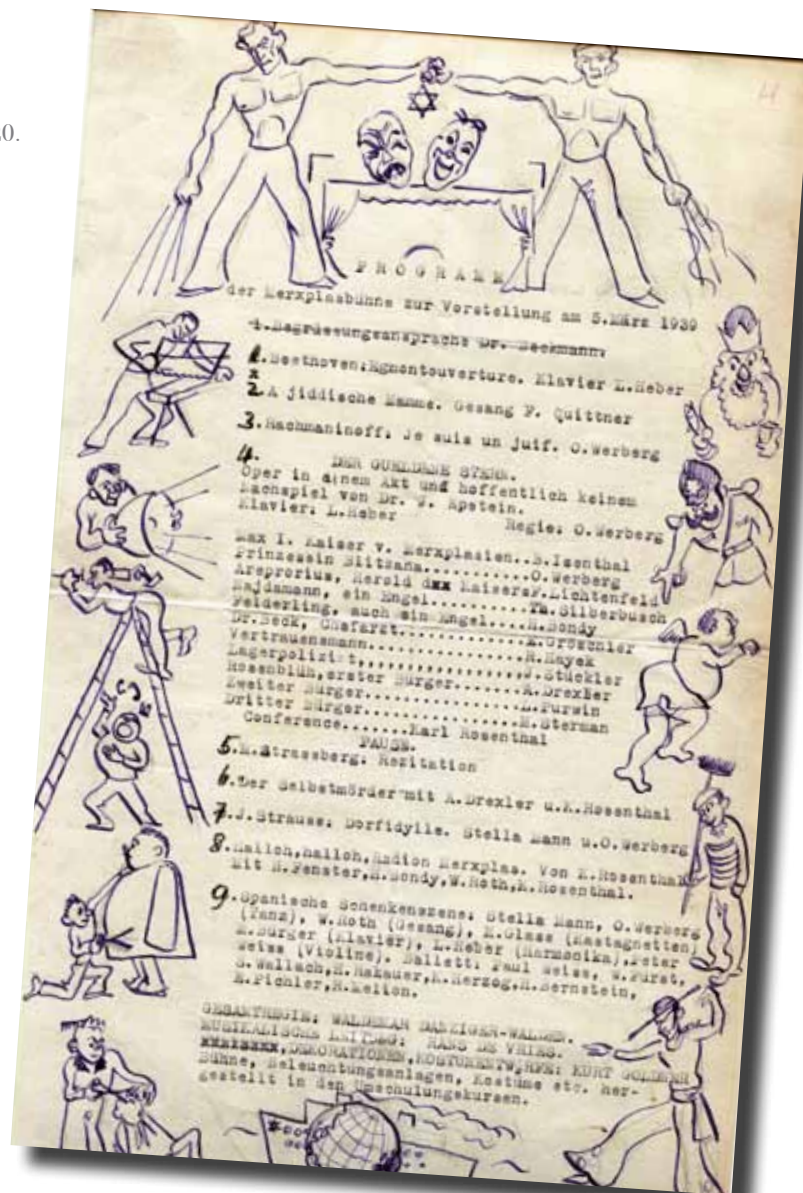 0.
PROGRAMM
der Merxplasbühne zur Vorstellung am 5.März 1939
1.Begrüssungsansprache Dr. Beckmann.
1.Beethoven:Egmontouverture. Klavier L.Heber
2.A jiddische Mamme. Gesang F. Quittner
3.Rachmaninoff: Je suis un juif. O.Werberg
4. DER GUELDENE STERN.
Oper in einem Akt und hoffentlich keinem
Nachspiel von Dr. J. Epstein.
Klavier: L.Heber Regie: O.Werberg
Max I. Kaiser v. Merxplasien..E.Isenthal
Prinzessin Blitzana..........O.Werberg
Areprorius, Herold dxx KaisersF.Lichtenfeld
Majdamann, ein Engel.........Th.Silberbusch
Felderling, auch ein Engel....H.Bondy
Dr.Beck, Chefarzt............K.Gröschler
Vertrauensmann...............R.Hayek
Lagerpolizist,,,,,,,,,,,,,,,,J.Stückler
Rosenblüh,erster Bürger.......A.Drexler
Zweiter Bürger...............L.Furwin
Dritter Bürger...............M.Sterman
Conference.......Karl Rosenthal
PAUSE.
5.M.Strassberg: Rezitation
6.Der Selbstmörder mit A.Drexler u.K.Rosenthal
7.J.Strauss: Dorfidylle. Stella Mann u.O.Werberg
8.Halloh,halloh,Radion Merxplas. Von K.Rosenthal
Mit H.Fenster,H.Bondy,W.Roth,K.Rosenthal.
9.Spanische Schenkenszene: Stella Mann, O.Werberg
(Tanz), W.Roth (Gesang), K.Glass (Kastagnetten)
M.Burger (Klavier), L.Heber (Harmonika),Peter
Weiss (Violine). Ballett: Paul Weiss, W.Fürst,
S.Wallach,H.Hakauer,K.Herzog,H.Bernstein,
E.Pichler,H.Melion.
GESAMTREGIE: WALDEMAR DANZIGER-WALDEN.
MUSIKALISCHE LEITUNG: HANS DE VRIES.
DEKORATIONEN,KOSTUMENTWÜRFE: KURT GOLDNER
Bühne, Beleuchtungsanlagen, Kostüme etc. her-
gestellt in den Umschulungskursen.